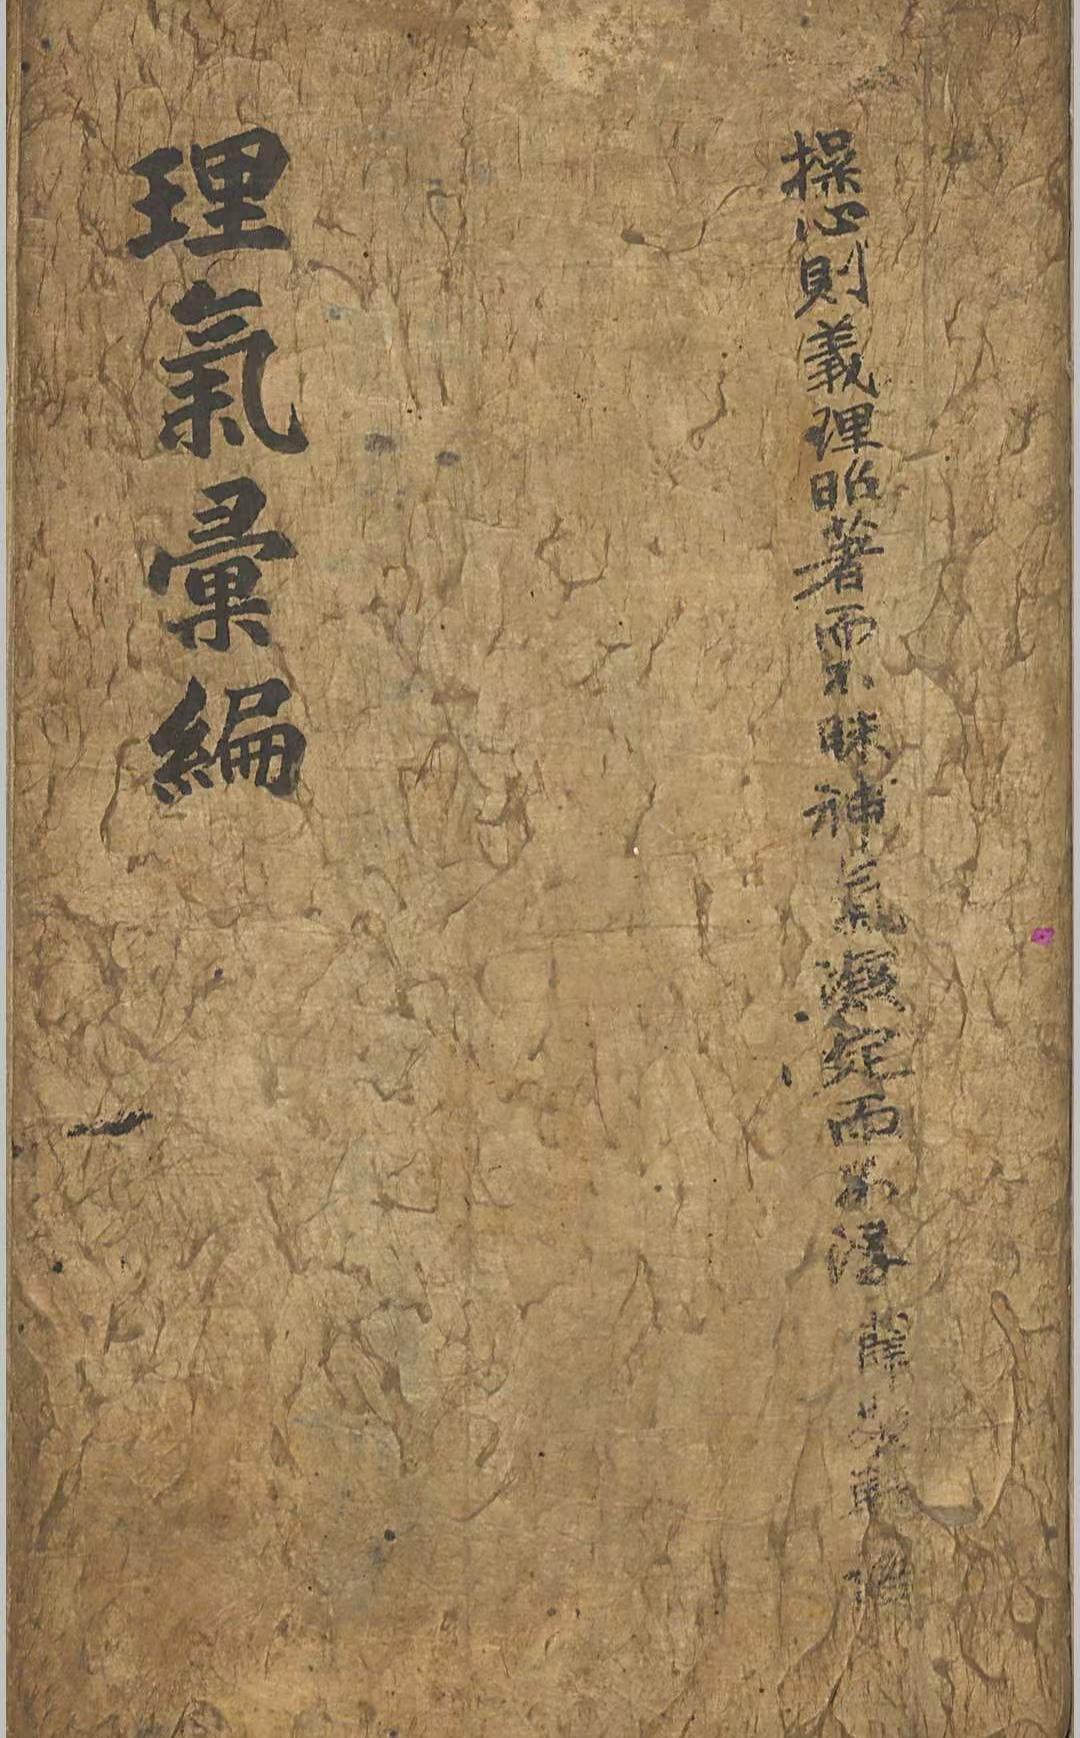 操心則義理昭著而不昧神氣凝定而不浮 薛敬軒 語
理氣彙編